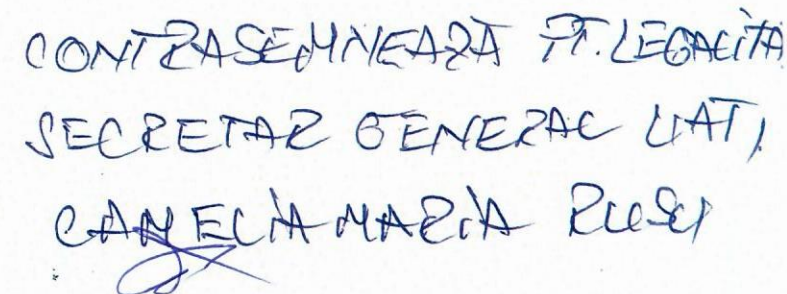 CONTRASEMNEAZĂ PT. LEGALITA
SECRETAR GENERAL UAT,
CAMELIA MARIA RUSU